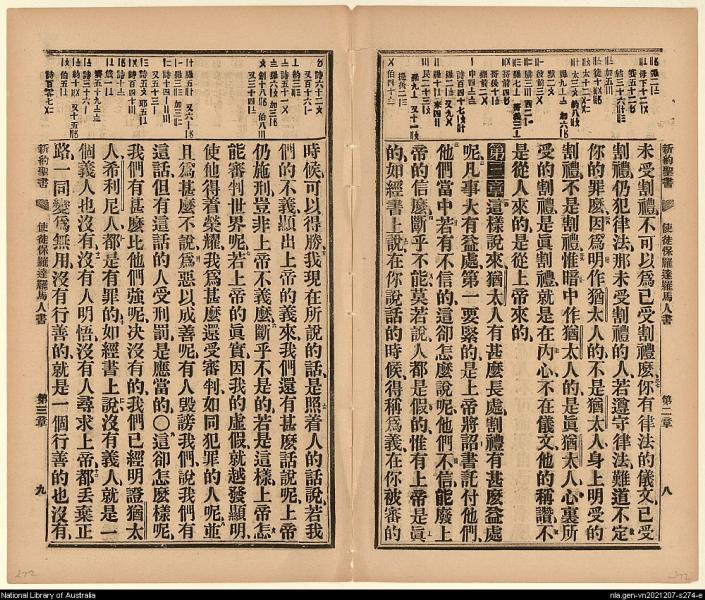 未受割禮、不可以爲已受割禮麼、你有律法的儀文、已受
割禮、仍犯律法、那未受割禮的人、若遵守律法、難道不定
你的罪麼、因爲明作猶太人的、不是猶太人、身上明受的
割禮、不是割禮、惟暗中作猶太人的、是眞猶太人、心裏所
受的割禮、是眞割禮、就是在內心、不在儀文、他的稱讚、不
是從人來的、是從上帝來的、
第三章 這樣說來、猶太人有甚麼長處、割禮有甚麼益處
呢、凡事大有益處、第一要緊的、是上帝將詔書託付他們、
他們當中若有不信的、這卻怎麼說呢、他們不信、能廢上
帝的信麼、斷乎不能、莫若說、人都是假的、惟有上帝是眞
的、如經書上說、在你說話的時候、得稱爲義、在你被審的
新約聖書 使徒保羅達羅馬人書 第二章 八
時候、可以得勝、我現在所說的話、是照着人的話說、若我
們的不義、顯出上帝的義來、我們還有甚麼話說呢、上帝
仍施刑、豈非上帝不義麼、斷乎不是的、若是這樣、上帝怎
能審判世界呢、若上帝的眞實、因我的虛假、就越發顯明、
使他得着榮耀、我爲甚麼還受審判、如同犯罪的人呢、並
且爲甚麼不說、爲惡以成善呢、有人毀謗我們、說我們有
這話、但有這話的人、受刑罰是應當的、〇這卻怎麼樣呢、
我們有甚麼比他們強呢、決沒有的、我們已經明證、猶太
人希利尼人、都是有罪的、如經書上說、沒有義人、就是一
個義人也沒有、沒有人明悟、沒有人尋求上帝、都丟棄正
路、一同變爲無用、沒有行善的、就是一個行善的也沒有、
新約聖書 使徒保羅達羅馬人書 第三章 九
National Library of Australia
nla.gen-vn2021207-s274-e